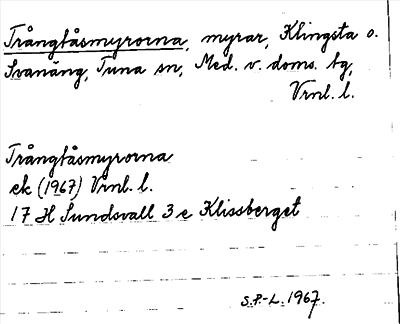 Trångtåsmyrorna, myrar, Klingsta o.
Svanäng, Tuna sn, Med. v. doms. tg,
Vrnl. l.
Trångtåsmyrorna
ek (1967) Vrnl. l.
17 H Sundsvall 3 e Klissberget
S.P.-L. 1967.